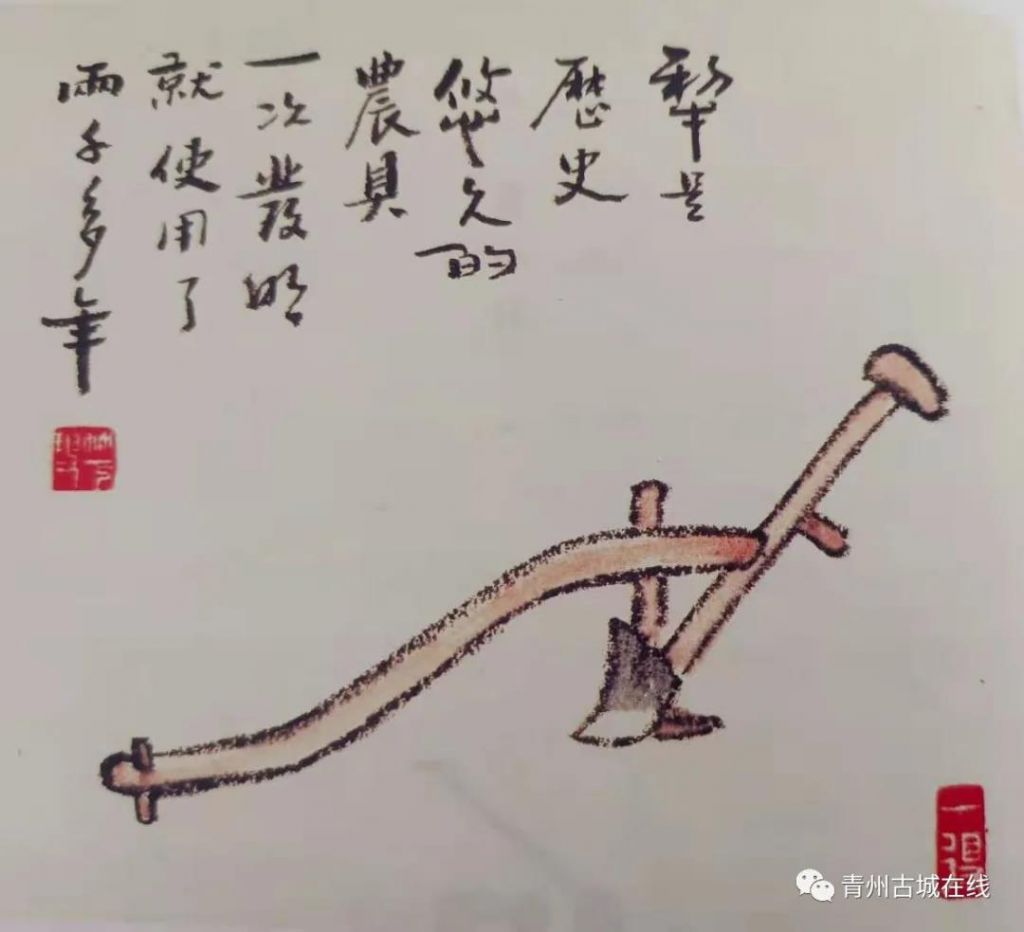 犂是
歷史
悠久的
農具
一次發明
就使用了
兩千多年
一得
青州古城在线